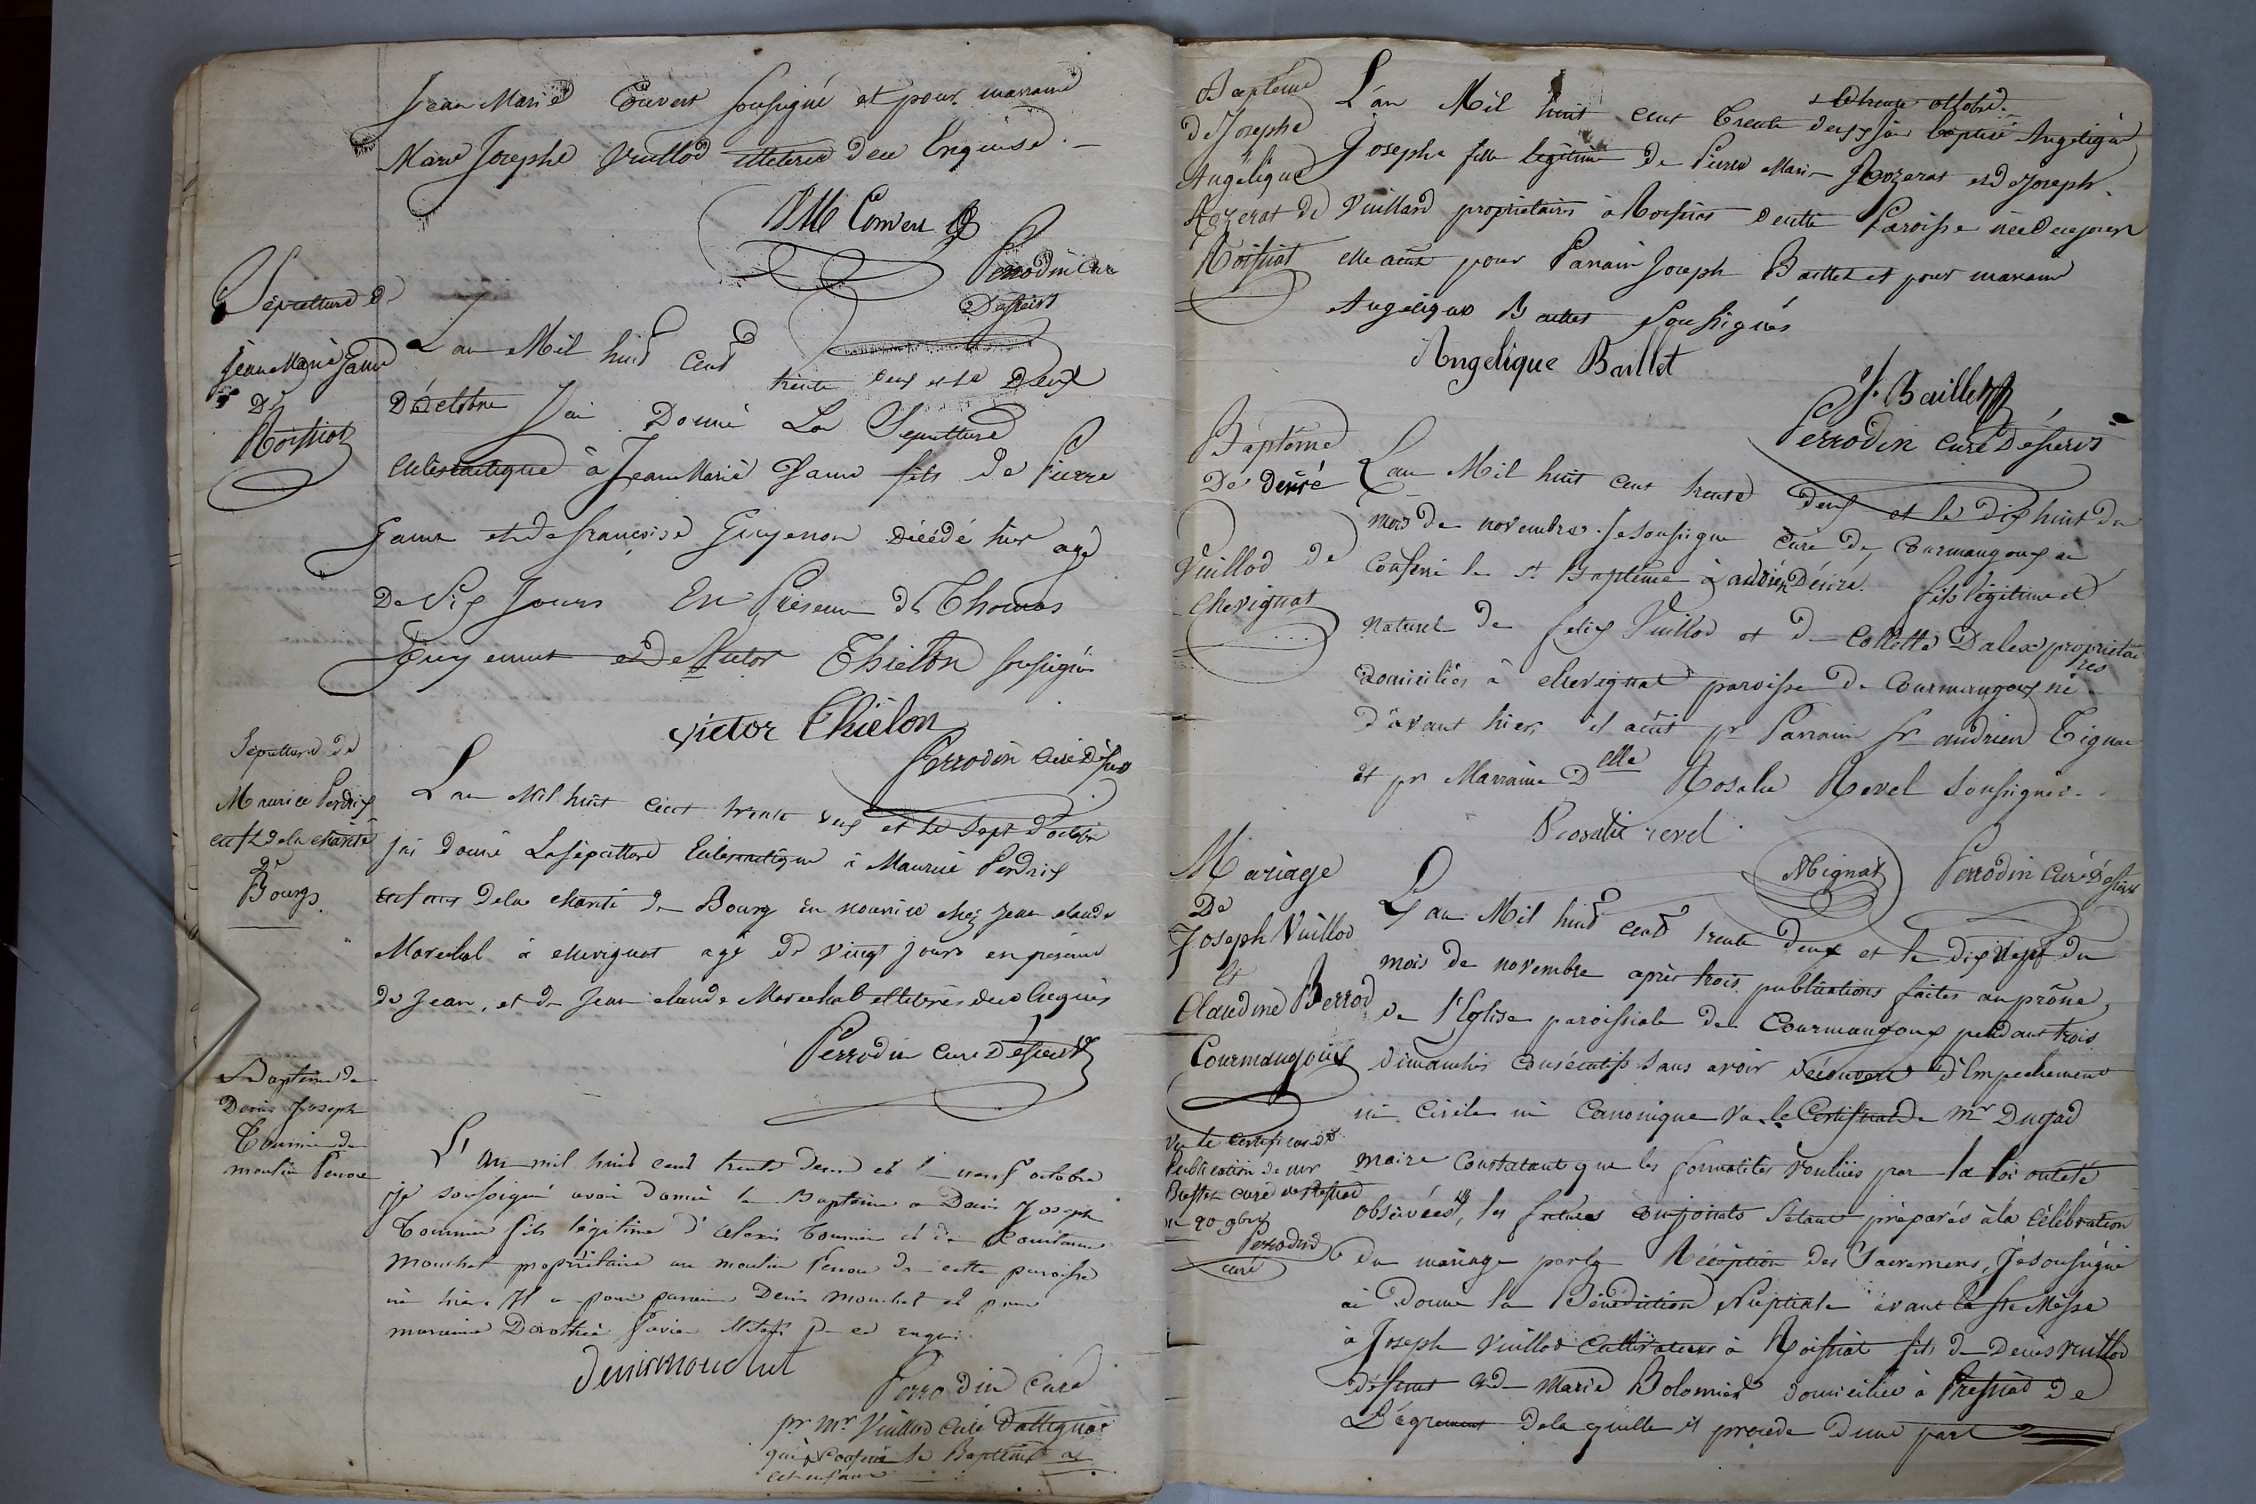 Jean Marie Convert soussigné et pour marraine
Marie Josephe Vuillod illiterée de ce Enquise.
JM Convert
Perrodin Curé
Desservt
Sépulture de
Jean Marie Jame
De
Roissiat
L'an Mil huit Cent trente deux et le Deux
D'octobre J'ai Donné La Sepulture
Eclesiastique à Jean Marie Jame fils de Pierre
Jame et de françoise Guyenon Décédé hier agé
De Six Jours En Présence de Thomas
et De Victor Thielon soussignés
victor Thiélon
Perrodin Curé Desser
Sepulture de
Maurice Perdrix
enft de la charité
De
Bourg
L'an Mil huit cent trente deux et le Sept d'octobre
j'ai donné La Sépulture Eclesiastique à Maurice Perdrix
enfant de la charité de Bourg en nourrice chez Jean claude
Marechal à chevignat agé de vingt jours en présence
de Jean, et de Jean claude Marechal illiterés de ce Enquis
Perrodin Curé Desservt
Baptême de
Denis Joseph
Tournier du
moulin Penoux
L'an mil huit cent trente deux et le neuf octobre
je soussigné avoir donné le Baptême a Denis Joseph
Tournier fils légitime d'alexis Tournier et de Constance
Mouchet propriétaire au moulin Penoux de cette paroisse
né hier. Il a pour parrain Denis mouchet et pour
marraine Dorothée enquis.
denis mouchet
Perrodin Curé
pr. Mr. Vuillod Curé D'attignat
qui a Conferé le Baptême a
cet enfant
Baptême
de Josephe
Angélique
Rozerat de
Roissiat
L'an Mil huit cent trente deux j'ai baptisé Angelique
+ le treize octobre.
Josephe fille legitime de Pierre Marie Rozerat et de Joseph
Vuillard proprietaires à Roissiat de cette Paroisse née de ce jour
elle a eut pour Parrain Joseph Baillet et pour marraine
Angelique Baillet soussignés
Angelique Baillet
J. Baillet
Perrodin Curé Desservt
Baptême
De désiré
Vuillod de
Chevignat
L'an Mil huit cent trente deux et le dix huit du
mois de novembre. Je soussigné Curé de Courmangoux ai
Conferé le St Baptême à andrien Désiré fils légitime et
naturel de felix Vuillod et de Collette Dalex proprietai
res
domiciliés à chevignat paroisse de Courmangoux né
d'avant hier, il a eut pr Parrain Sr andrien Tignat
et pr Marraine Delle Rosalie Revel soussignés.
Rosalie revel
Perrodin Curé Desservt
Mariage
De
Joseph Vuillod
et
Claudine Berrod
Courmangoux
vu le certificat de
Publication de mr
curé de Pressiat
du 20 9bre
Perrodin
curé
L'an Mil huit cent trente deux et le dix neuf du
mois de novembre après trois publications faites au prône
de l'Eglise paroissiale de Courmangoux pendant trois
dimanches consécutifs sans avoir découvert d'Empechement
ni Civile ni Canonique vu le Certificat de Mr Dugad
maire Constatant que les formalités voulues par la loi ont été
observées, les futurs conjoints s'étant préparés à la célébration
du mariage par la Réception des Sacremens, Je soussigné
ai donné la Bénédiction Nuptiale avant la ste Messe
à Joseph Vuillod Cultivateur à Roissiat fils de Denis Vuillod
défunt et de Marie Bolomier domiciliée à Pressiat de
L'agrement de la quelle il procede d'une part